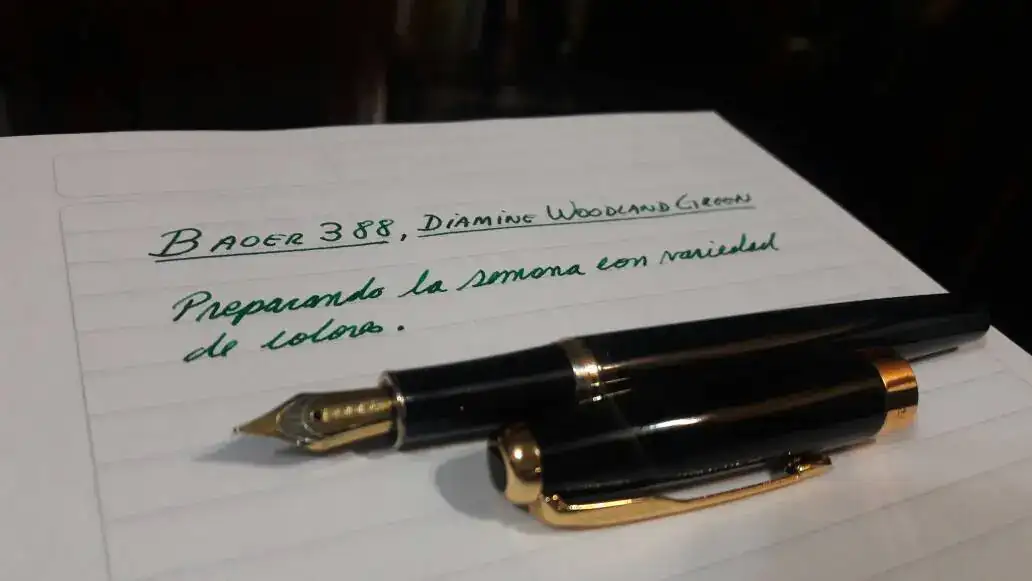 BAOER 388, DIAMINE WOODLAND GREEN
Preparando la semana con variedad
de colores.